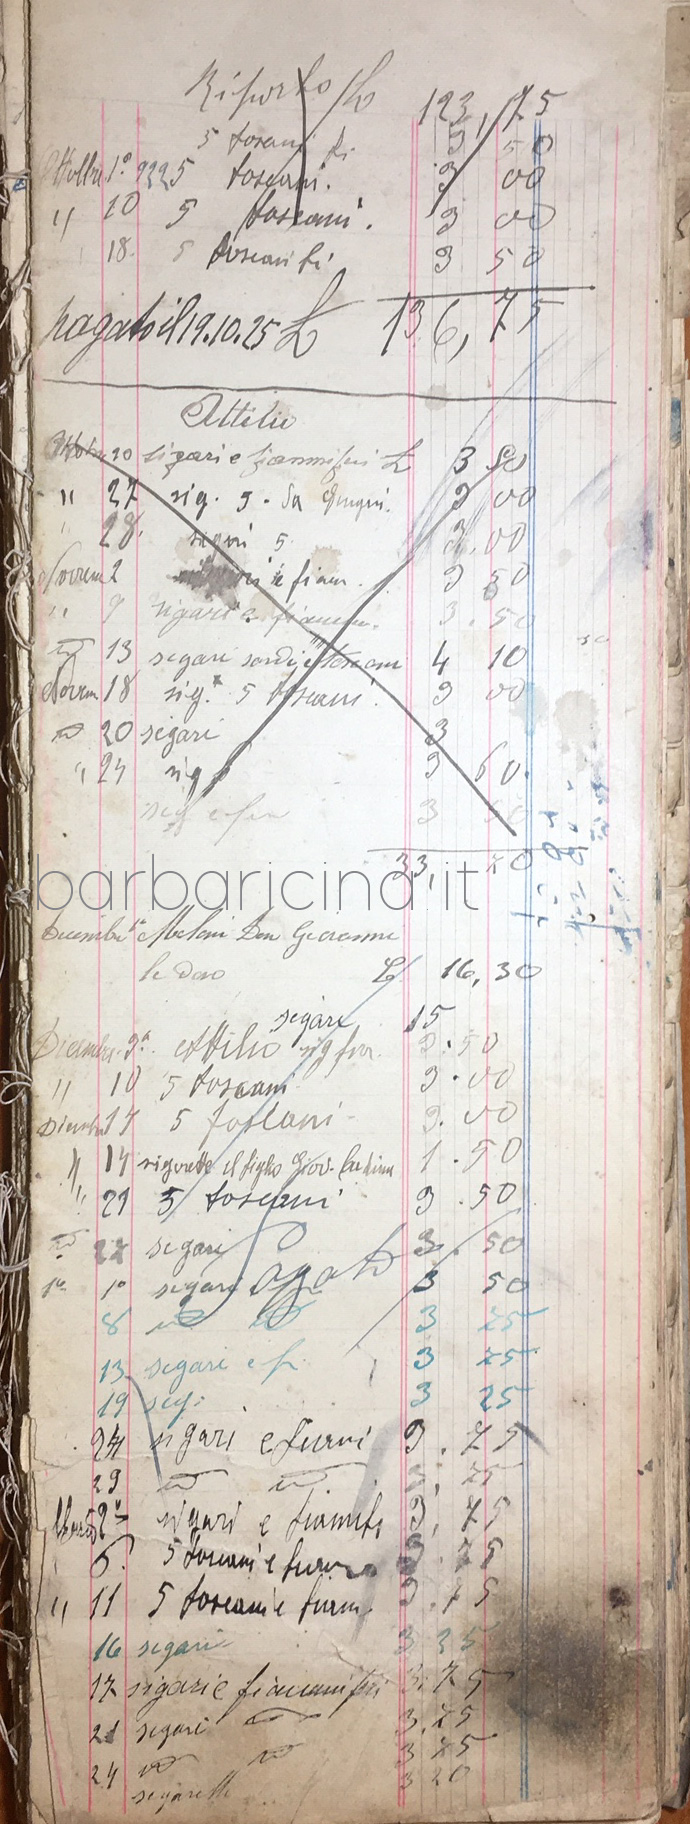 Riporto £ 123,75
5 toscani fi 3 50
Ottobre 1° 925 5 toscani. 3 00
" 10 5 toscani. 3 00
18 5 toscani fi 3 50
pagato il 19.10.25 £ 136,75
Attilio
Ottobre 20 sigari e fiammiferi £ 3 50
" 27 sig. 5 3 00
" 28 segari 5 3.00
Novem 2 e fiam. 3 50
" 9 sigari e fiamm. 3.50
13 segari toscani 4 10
Novem 18 sig. 5 toscani. 3 00
20 sigari 3
" 24 sig 3 60.
sig e fia 3 50
33,70
barbaricina.it
Dicembre Meloni Don Giovanni
le devo £ 16,30
segare 15
Dicembre 3 Attilio sig fia. 3.50
" 10 5 toscani 3.00
17 5 toscani 3.00
" 14 sigarette il figlio Giov. 1.50
" 21 5 toscani 3.50
27 segari 3.50
1° segari 3 50
Pagato
8 3 75
13 segari e f. 3 75
19 seg. 3 25
24 sigari e fiami 3.75
29 75
2 sigari e fiamife 3,75
6 5 toscani e fiam 3.75
" 11 5 toscani e fiam. 3.75
16 segari 3 25
17 sigari e fiammiferi 3.75
21 segari 3.75
24 3 75
segarette 3 20